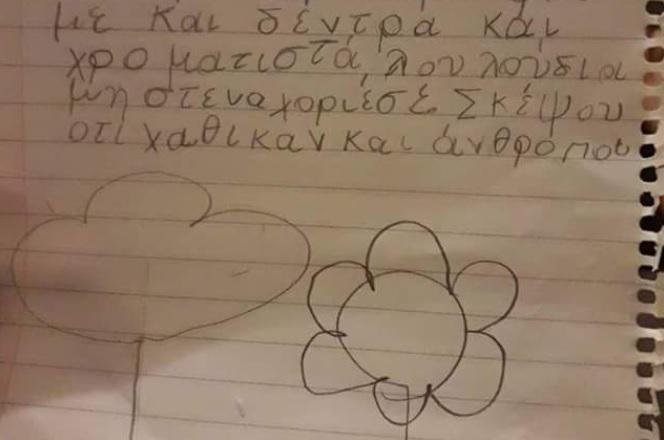 με και δέντρα και
χρο ματιστά, λου λούδια
μη στενα χοριέσε Σκέψου
οτί χαθικαν και άνθρο που